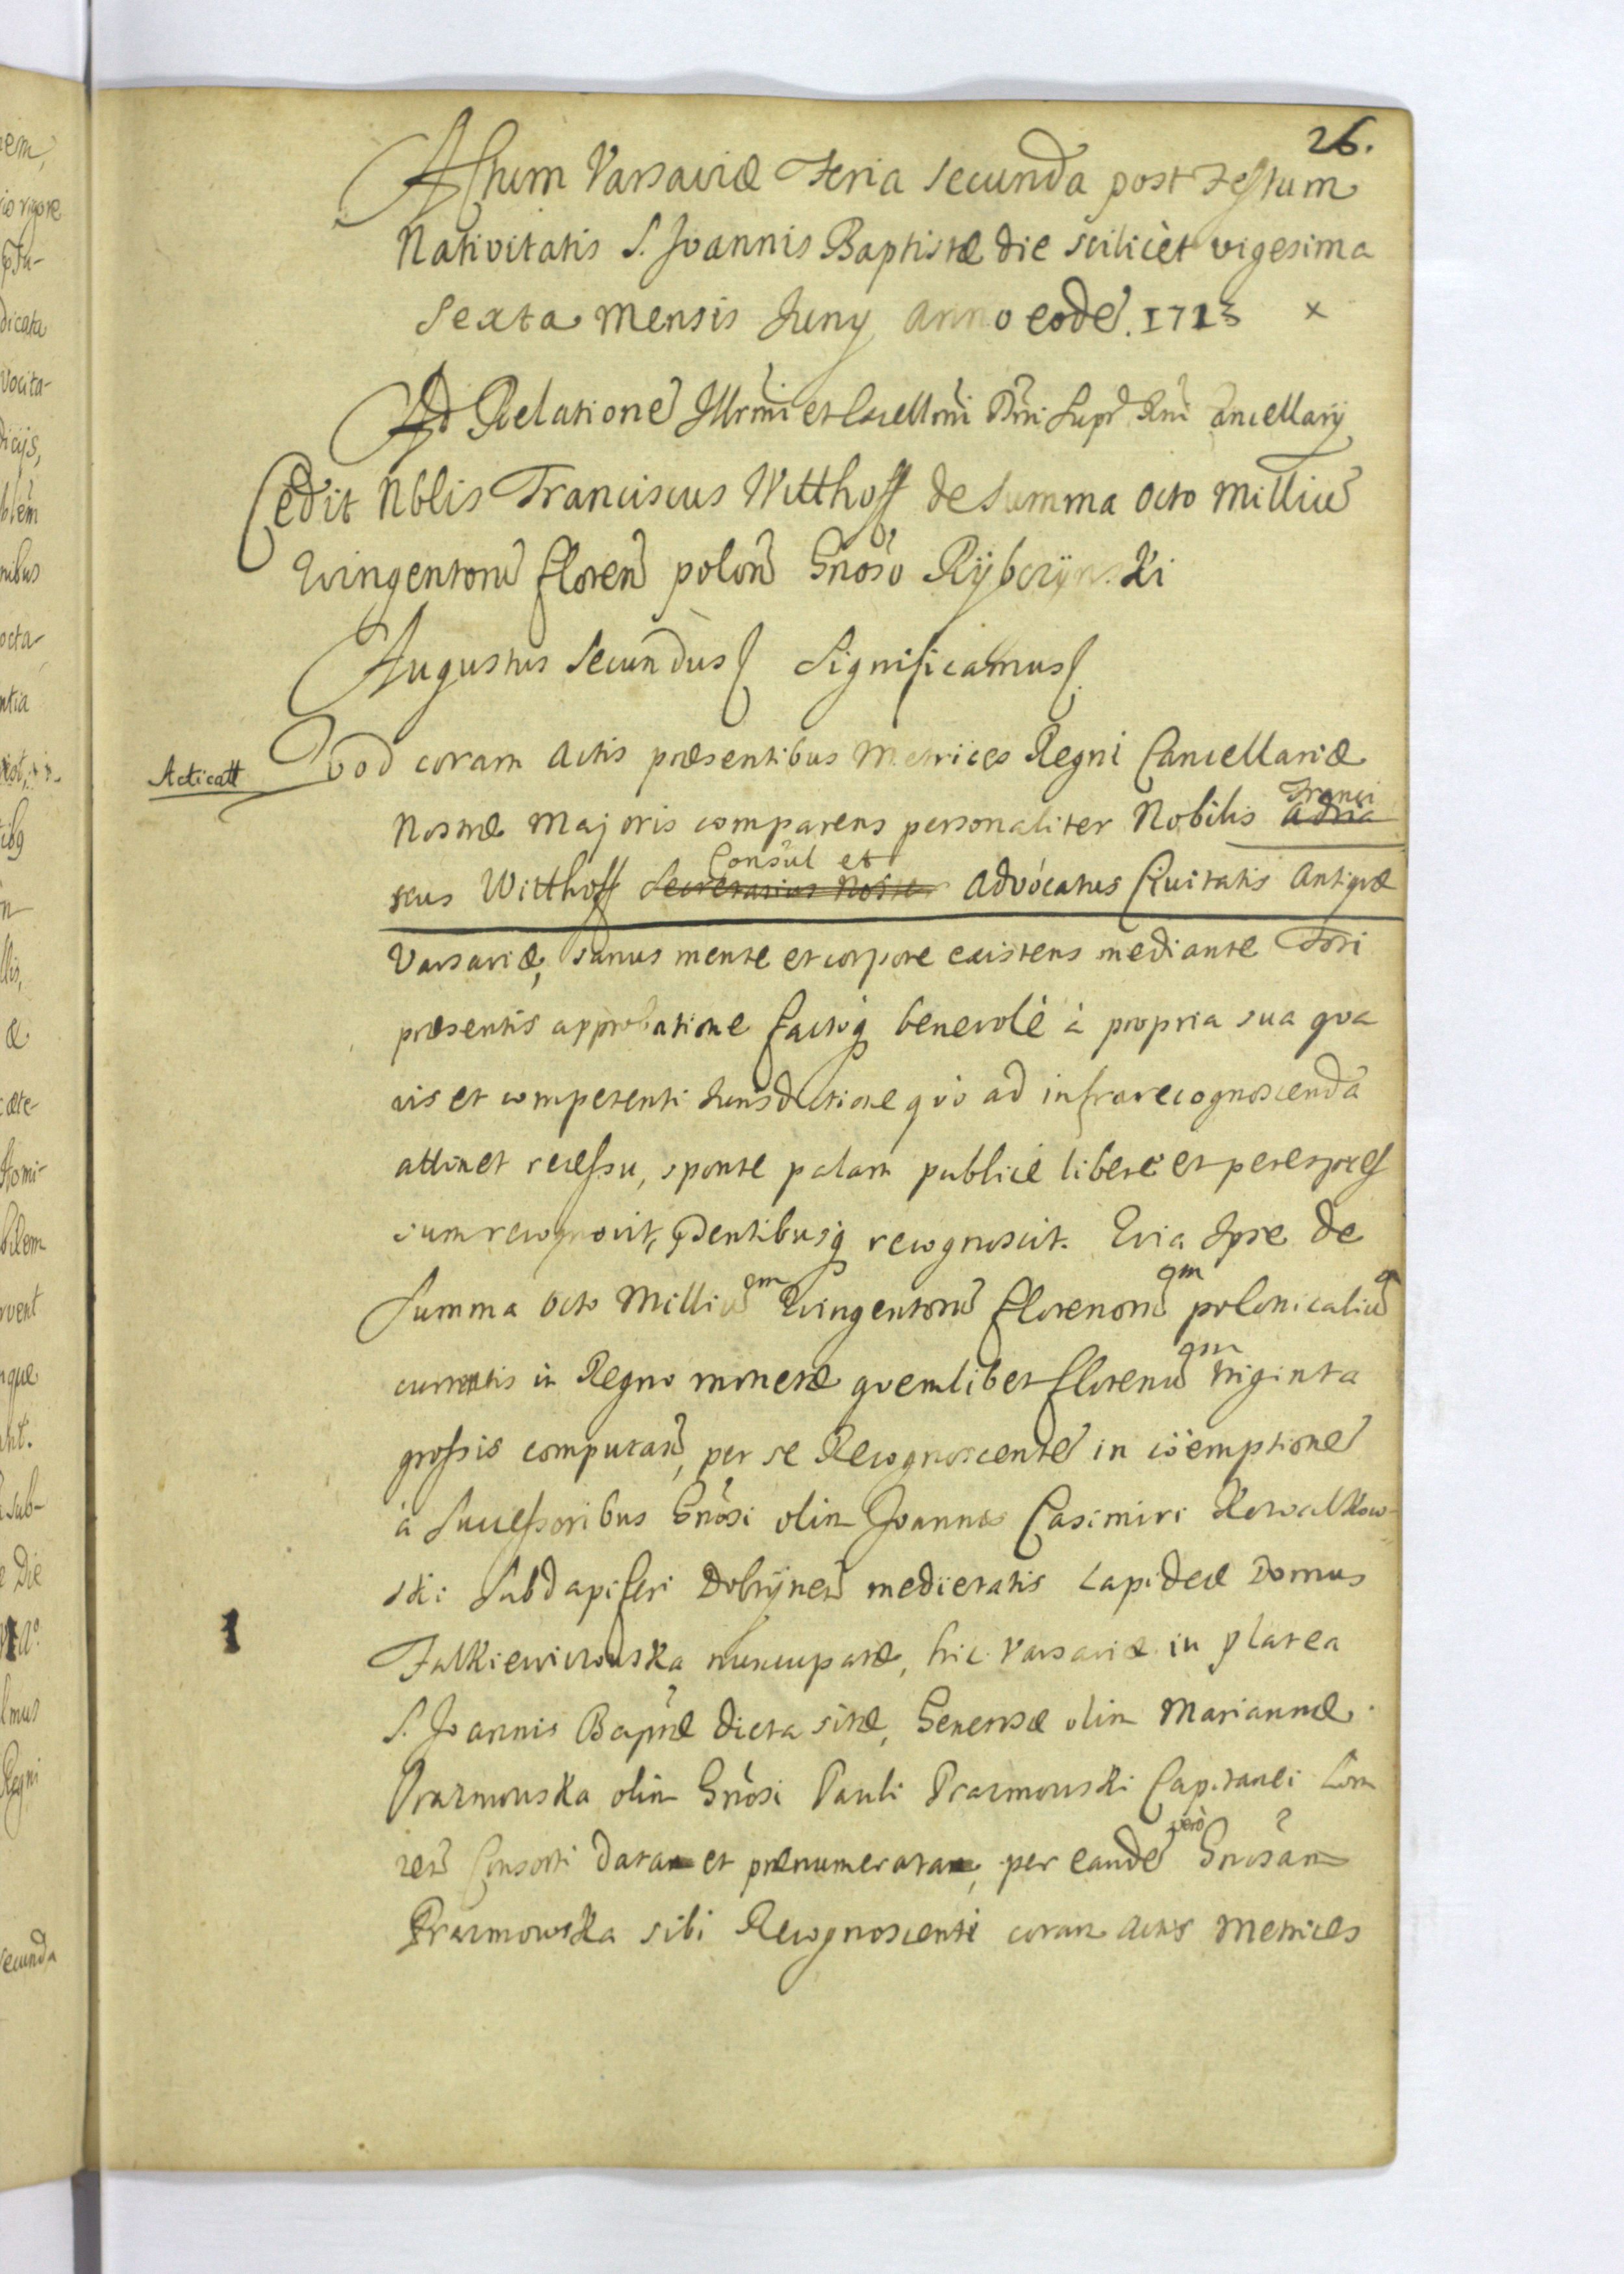 26.
Actum Varsaviæ Feria secunda post Festum
Nativitatis S. Joannis Baptistæ die scilicèt vigesima
Sexta Mensis Juny anno eodẽ. 1713 x
Ad Relationẽ Illrm̃i et Excellm̃i Dn̄i Supr̃ Rn̄i Cancellarij
Cedit Nb̄lis Franciscus Witthoff de summa octo milliũ
Quingentorũ floreñ poloñ Gnõso Rÿbczÿnski
Augustus Secundus Significamus
Acticatt
Quod coram Actis præsentibus Metrices Regni Cancellariæ
Nostræ Majoris comparens personaliter Nobilis Adria Franci
scus Witthoff Secretarius Noster Consul et Advocatus Civitatis Antiquæ
Varsaviæ, sanus mente et corpore existens mediante Fori
præsentis approbatione factoq̃ benevolè à propria sua qva
vis et competenti Jurisdictione qvò ad infrarecognoscenda
attinet recessu, sponte palam publicè liberè et per expres
sum recognovit, p̃dentibusq̃ recognoscit. Quia Ipse de
Summa octo Milliũ qm Quingentorũ florenorũ qm polonicaliũ q
currentis in Regno monetæ qvemlibet florenũ qm triginta
grossis computañ, per se Recognoscentẽ in coemptionẽ
à Successoribus Gnõsi olim Joannis Casimiri Kowalkow-
ski Subdapiferi Dobrÿneñ medietatis Lapideæ Domus
Falkiewiczowska nuncupatæ, hic Varsaviæ in platea
S. Joannis Bap̃tæ dicta sitæ, Generosæ olim Mariannæ
Prazmowska olim Gnõsi Pauli Prazmowski Capitanei Lom
zeñ Consorti data et prænumerata, per eandẽ verò Gnõsam
Prazmowska sibi Recognoscenti coram Actis Metrices